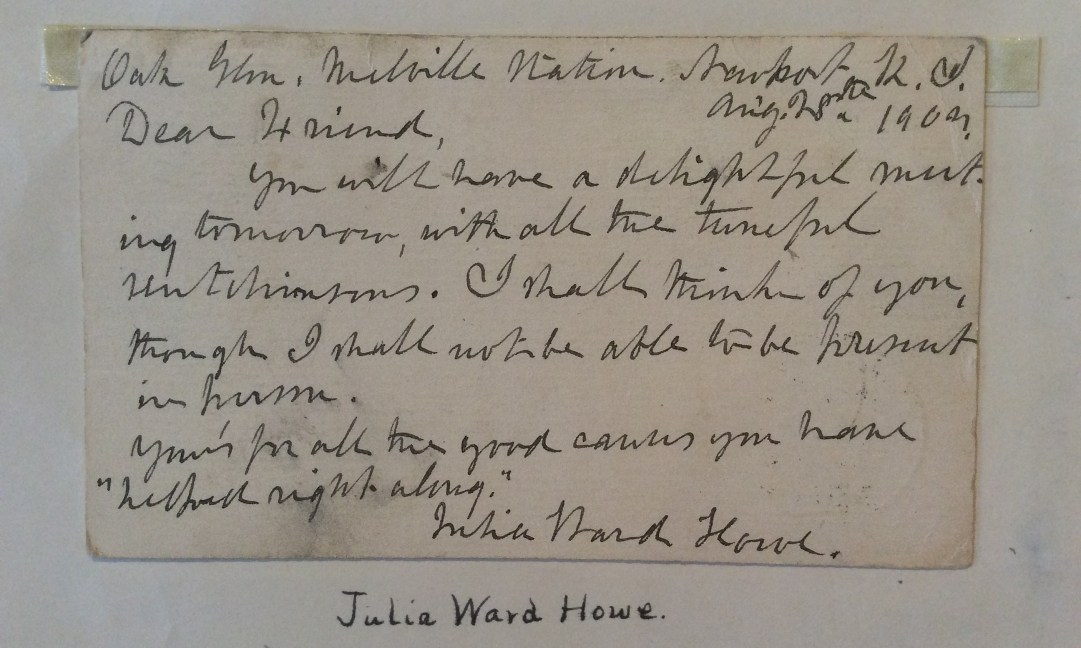 Oak Glen, Melville Station. Newport R. I.
Aug. 28th 1904.
Dear Friend,
You will have a delightful meet-
ing tomorrow, with all the tuneful
Hutchinsons. I shall think of you,
though I shall not be able to be present
in person.
Yours for all the good causes you have
"helped right along."
Julia Ward Howe.
Julia Ward Howe.